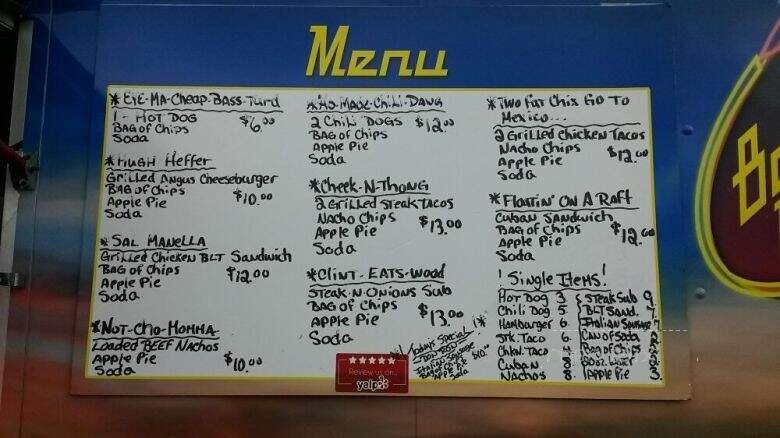 Menu
* EYE-MA-Cheap-Bass-Turd
1 - HOT DOG
BAG of Chips $6.00
Soda
* HUGH Heffer
Grilled Angus Cheeseburger
BAG of Chips
Apple Pie $10.00
Soda
* SAL MANELLA
Grilled Chicken BLT Sandwich
BAG of Chips $12.00
Apple Pie
Soda
* NOT-Cho-MOMMA
Loaded BEEF Nachos
Apple Pie
Soda $10.00
2 Chili DOGS $12.00
BAG of Chips
Apple Pie
Soda
* Cheek-N-Thong
2 Grilled Steak TACOS
NACHO Chips
Apple Pie $13.00
Soda
* CLINT-EATS-Wood
STEAK-N-ONIONS SUB
BAG of Chips
Apple Pie $13.00
Soda
Todays Special
$10.00
Soda
Review us on...
yelp
* Two Fat Chix Go To
Mexico...
2 Grilled Chicken TACOS
NACHO Chips
Apple Pie $12.00
Soda
* FLOATIN' ON A Raft
CUBAN Sandwich
BAG of Chips
Apple Pie $12.00
Soda
! Single Items!
HOT DOG 3 STEAK SUB 9
Chili Dog 5 BLT SAND. 7
Hamburger 6 Italian Sausage 7
STK. TACO 6 CAN of SODA
CHKN. TACO Bag of Chips
CUBAN 8
NACHOS 8 Apple Pie